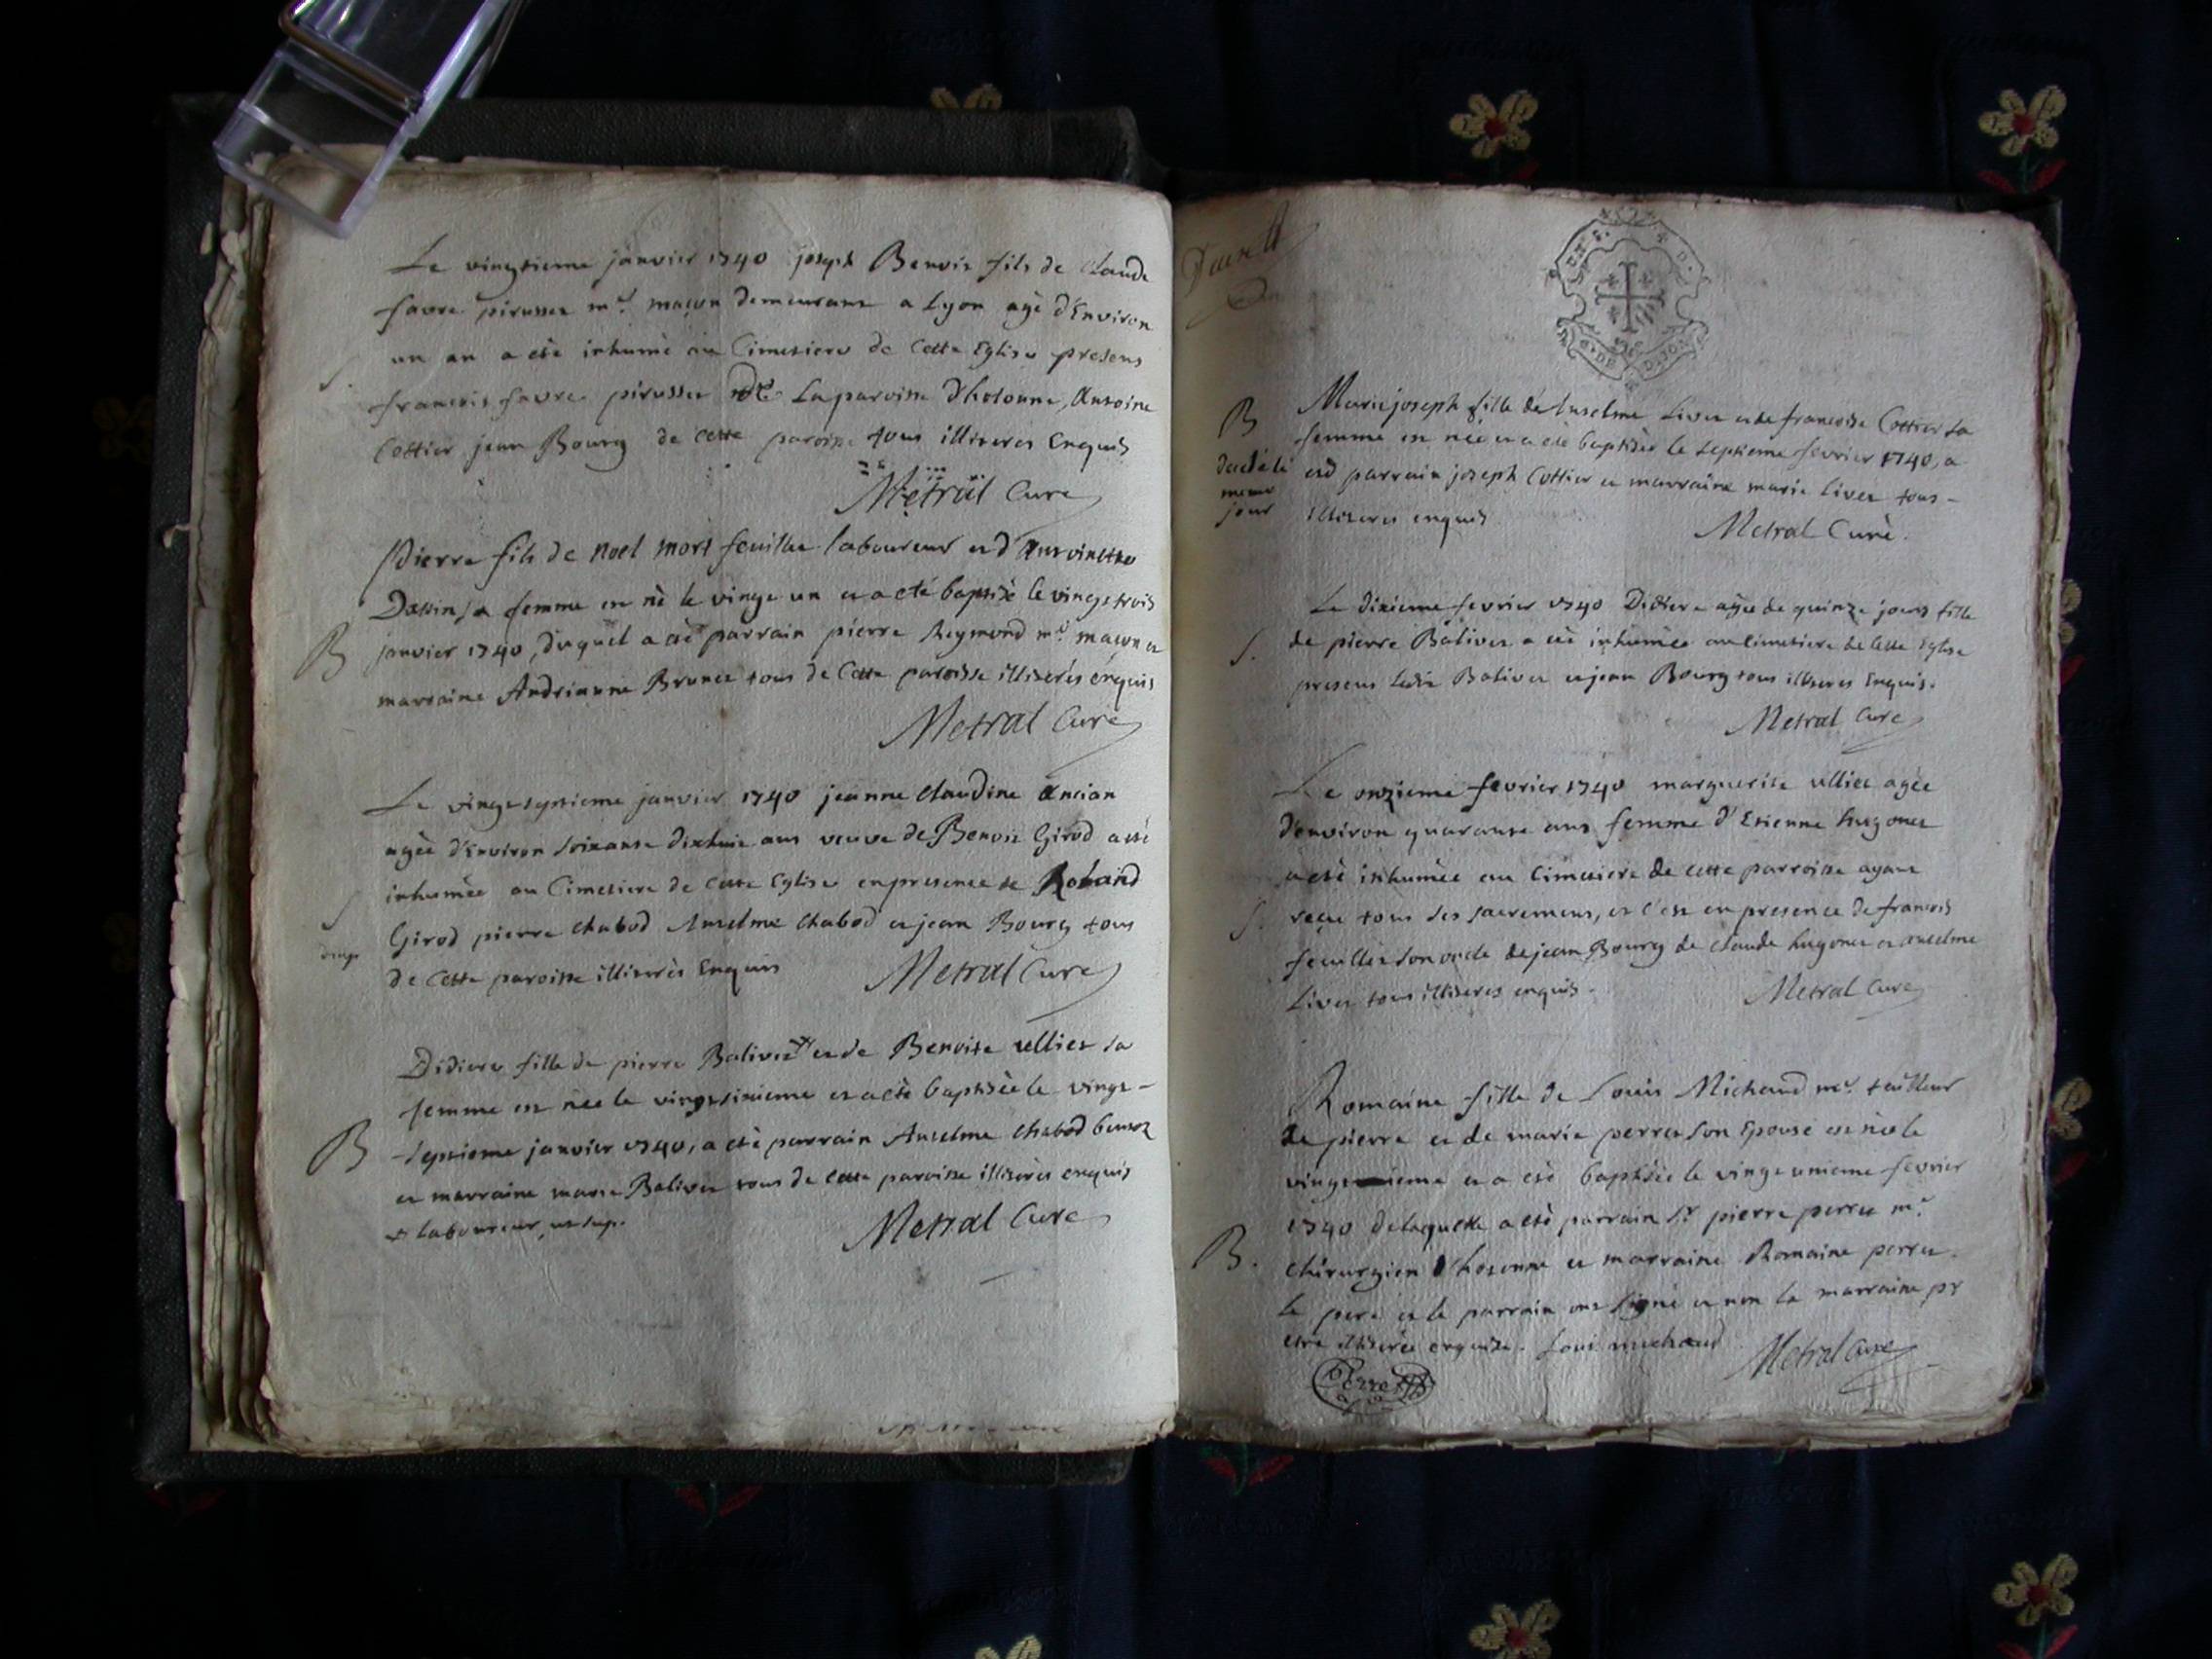 Le vingtieme janvier 1740 joseph Benoit fils de Claude
favre pirusset me. maçon demeurant a Lyon agé d'Environ
un an a eté inhumé au Cimetiere de Cette Eglise presens
S.
francois favre pirusset de La paroisse d'hotonne, Antoine
Cottier jean Bourg de Cette paroisse tous illiterés Enquis
Metral Curé
Pierre fils de Noel mort feuillet laboureur et d'Antoinette
sa femme est né le vingt un et a eté baptisé le vingt trois
B
janvier 1740, duquel a eté parrain pierre Reymond me. maçon et
marraine Andrianne Brunet tous de Cette paroisse illiterés enquis
Metral Curé
Le vingt septieme janvier 1740 jeanne Claudine Ancian
agée d'Environ soixante dixhuit ans veuve de Benoit Girod a eté
inhumée au Cimetiere de Cette Eglise en presence de Roland
S
Girod pierre Chabod Anselme Chabod et jean Bourg tous
de Cette paroisse illiterés Enquis
Metral Curé
Didiere fille de pierre Balivet + et de Benoite ulliet sa
femme est née le vingt sixieme et a eté baptisée le vingt-
B
septieme janvier 1740, a eté parrain Anselme Chabod
et marraine marie Balivet tous de Cette paroisse illiterés enquis
+ laboureur, ut sup.
Metral Curé
D. DE DIJON
B
Marie joseph fille de Anselme Livet et de francoise Cottier sa
femme est née et a eté baptisée le septieme fevrier 1740, a
du dit
meme
jour
eté parrain joseph Cottier et marraine marie Livet tous-
illiterés enquis
Metral Curé.
Le dixieme fevrier 1740 Didiere agée de quinze jours fille
S.
de pierre Balivet a eté inhumée au Cimetiere de Cette Eglise
presens ledit Balivet et jean Bourg tous illiterés Enquis.
Metral Curé
Le onzieme fevrier 1740 marguerite ulliet agée
d'environ quarante ans femme d'Etienne hugonet
a eté inhumée au Cimetiere de Cette parroisse ayant
S.
reçu tous les sacremens, et c'est en presence de francois
feuillet son oncle de jean Bourg de Claude hugonet et anselme
Livet tous illiterés enquis.
Metral Curé
Romaine fille de Louis Michaud me. tailleur
de pierre et de marie perret son Epouse est née le
et a eté baptisée le vingt unieme fevrier
1740 de laquelle a eté parrain Sr. pierre perret me.
B.
Chirurgien d'hotonne et marraine Romaine perret.
le pere et le parrain ont signé et non la marraine pr
etre illiterée enquise. Loui michaud
Metral Curé
Perret